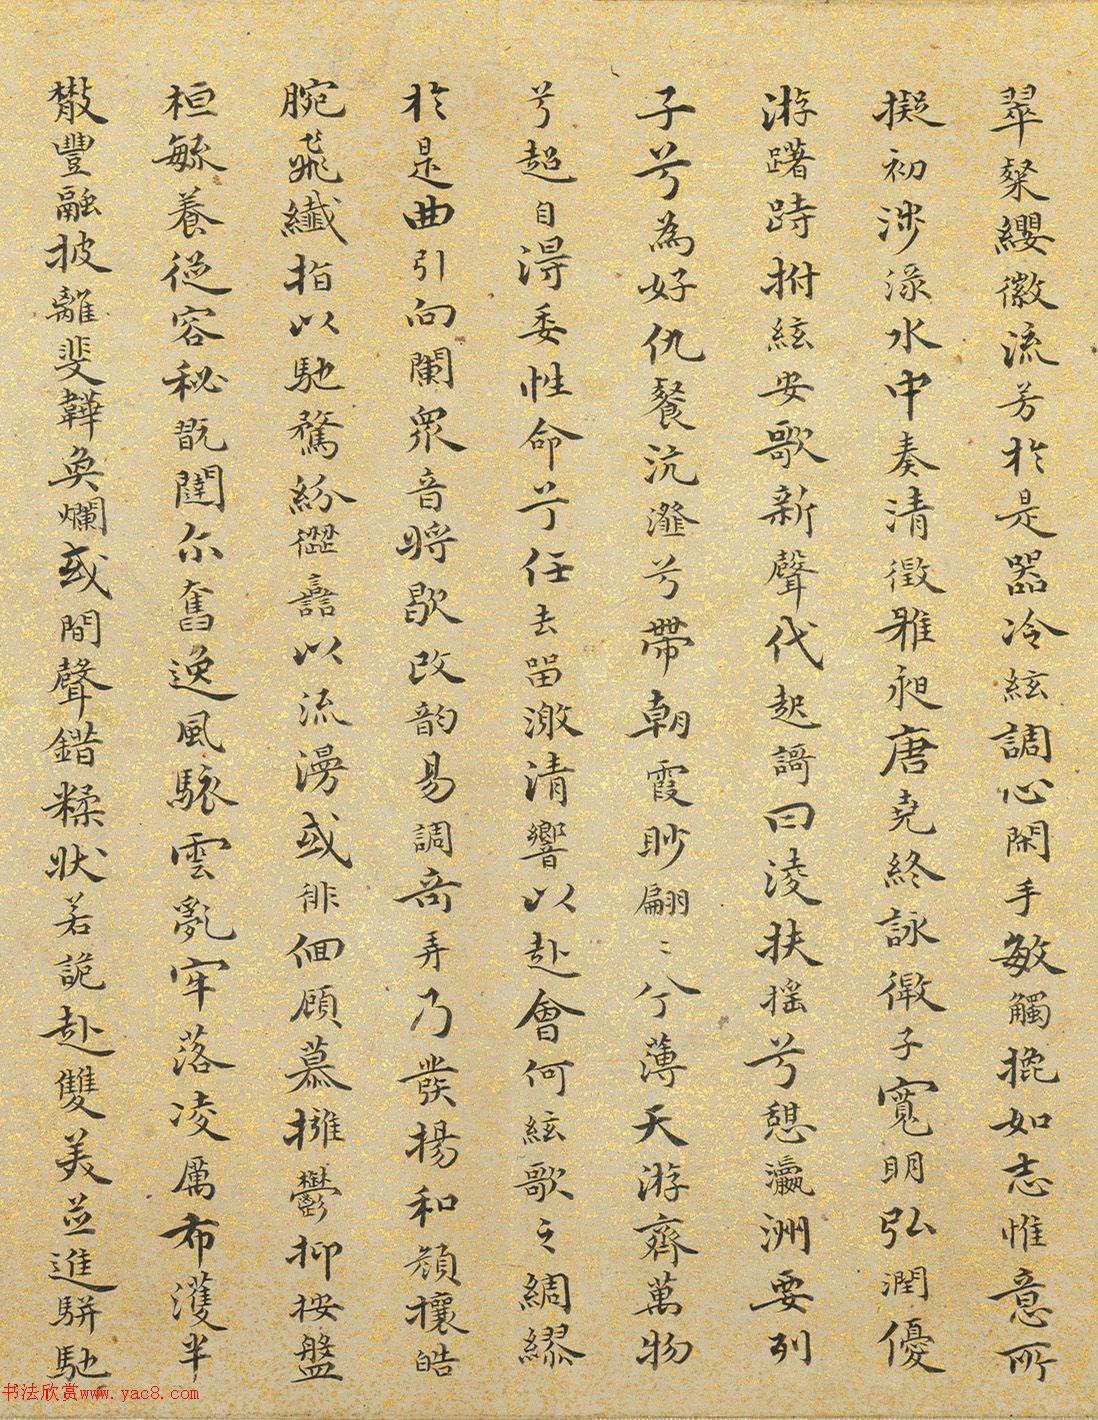 翠粲纓徽流芳於是器冷絃調心閑手敏觸㧓如志惟意所
擬初涉淥水中奏清徵雅昶唐堯終詠微子寬明弘潤優
游躇跱拊絃安歌新聲代起謌曰淩扶搖兮憩瀛洲要列
子兮為好仇餐沆瀣兮帶朝霞眇翩〻兮薄天游齊萬物
兮超自得委性命兮任去留激清響以赴會何絃歌之綢繆
於是曲引向闌眾音將歇改韵易調奇弄乃發揚和顏攘皓
腕飛纖指以馳騖紛𠎷譶以流漫或徘徊顧慕擁鬱抑按盤
桓毓養從容秘翫闥尒奮逸風駭雲亂牢落凌厲布濩半
散豐融披離斐韡奐爛或間聲錯糅狀若詭赴雙美並進駢馳
书法欣赏www.yac8.com